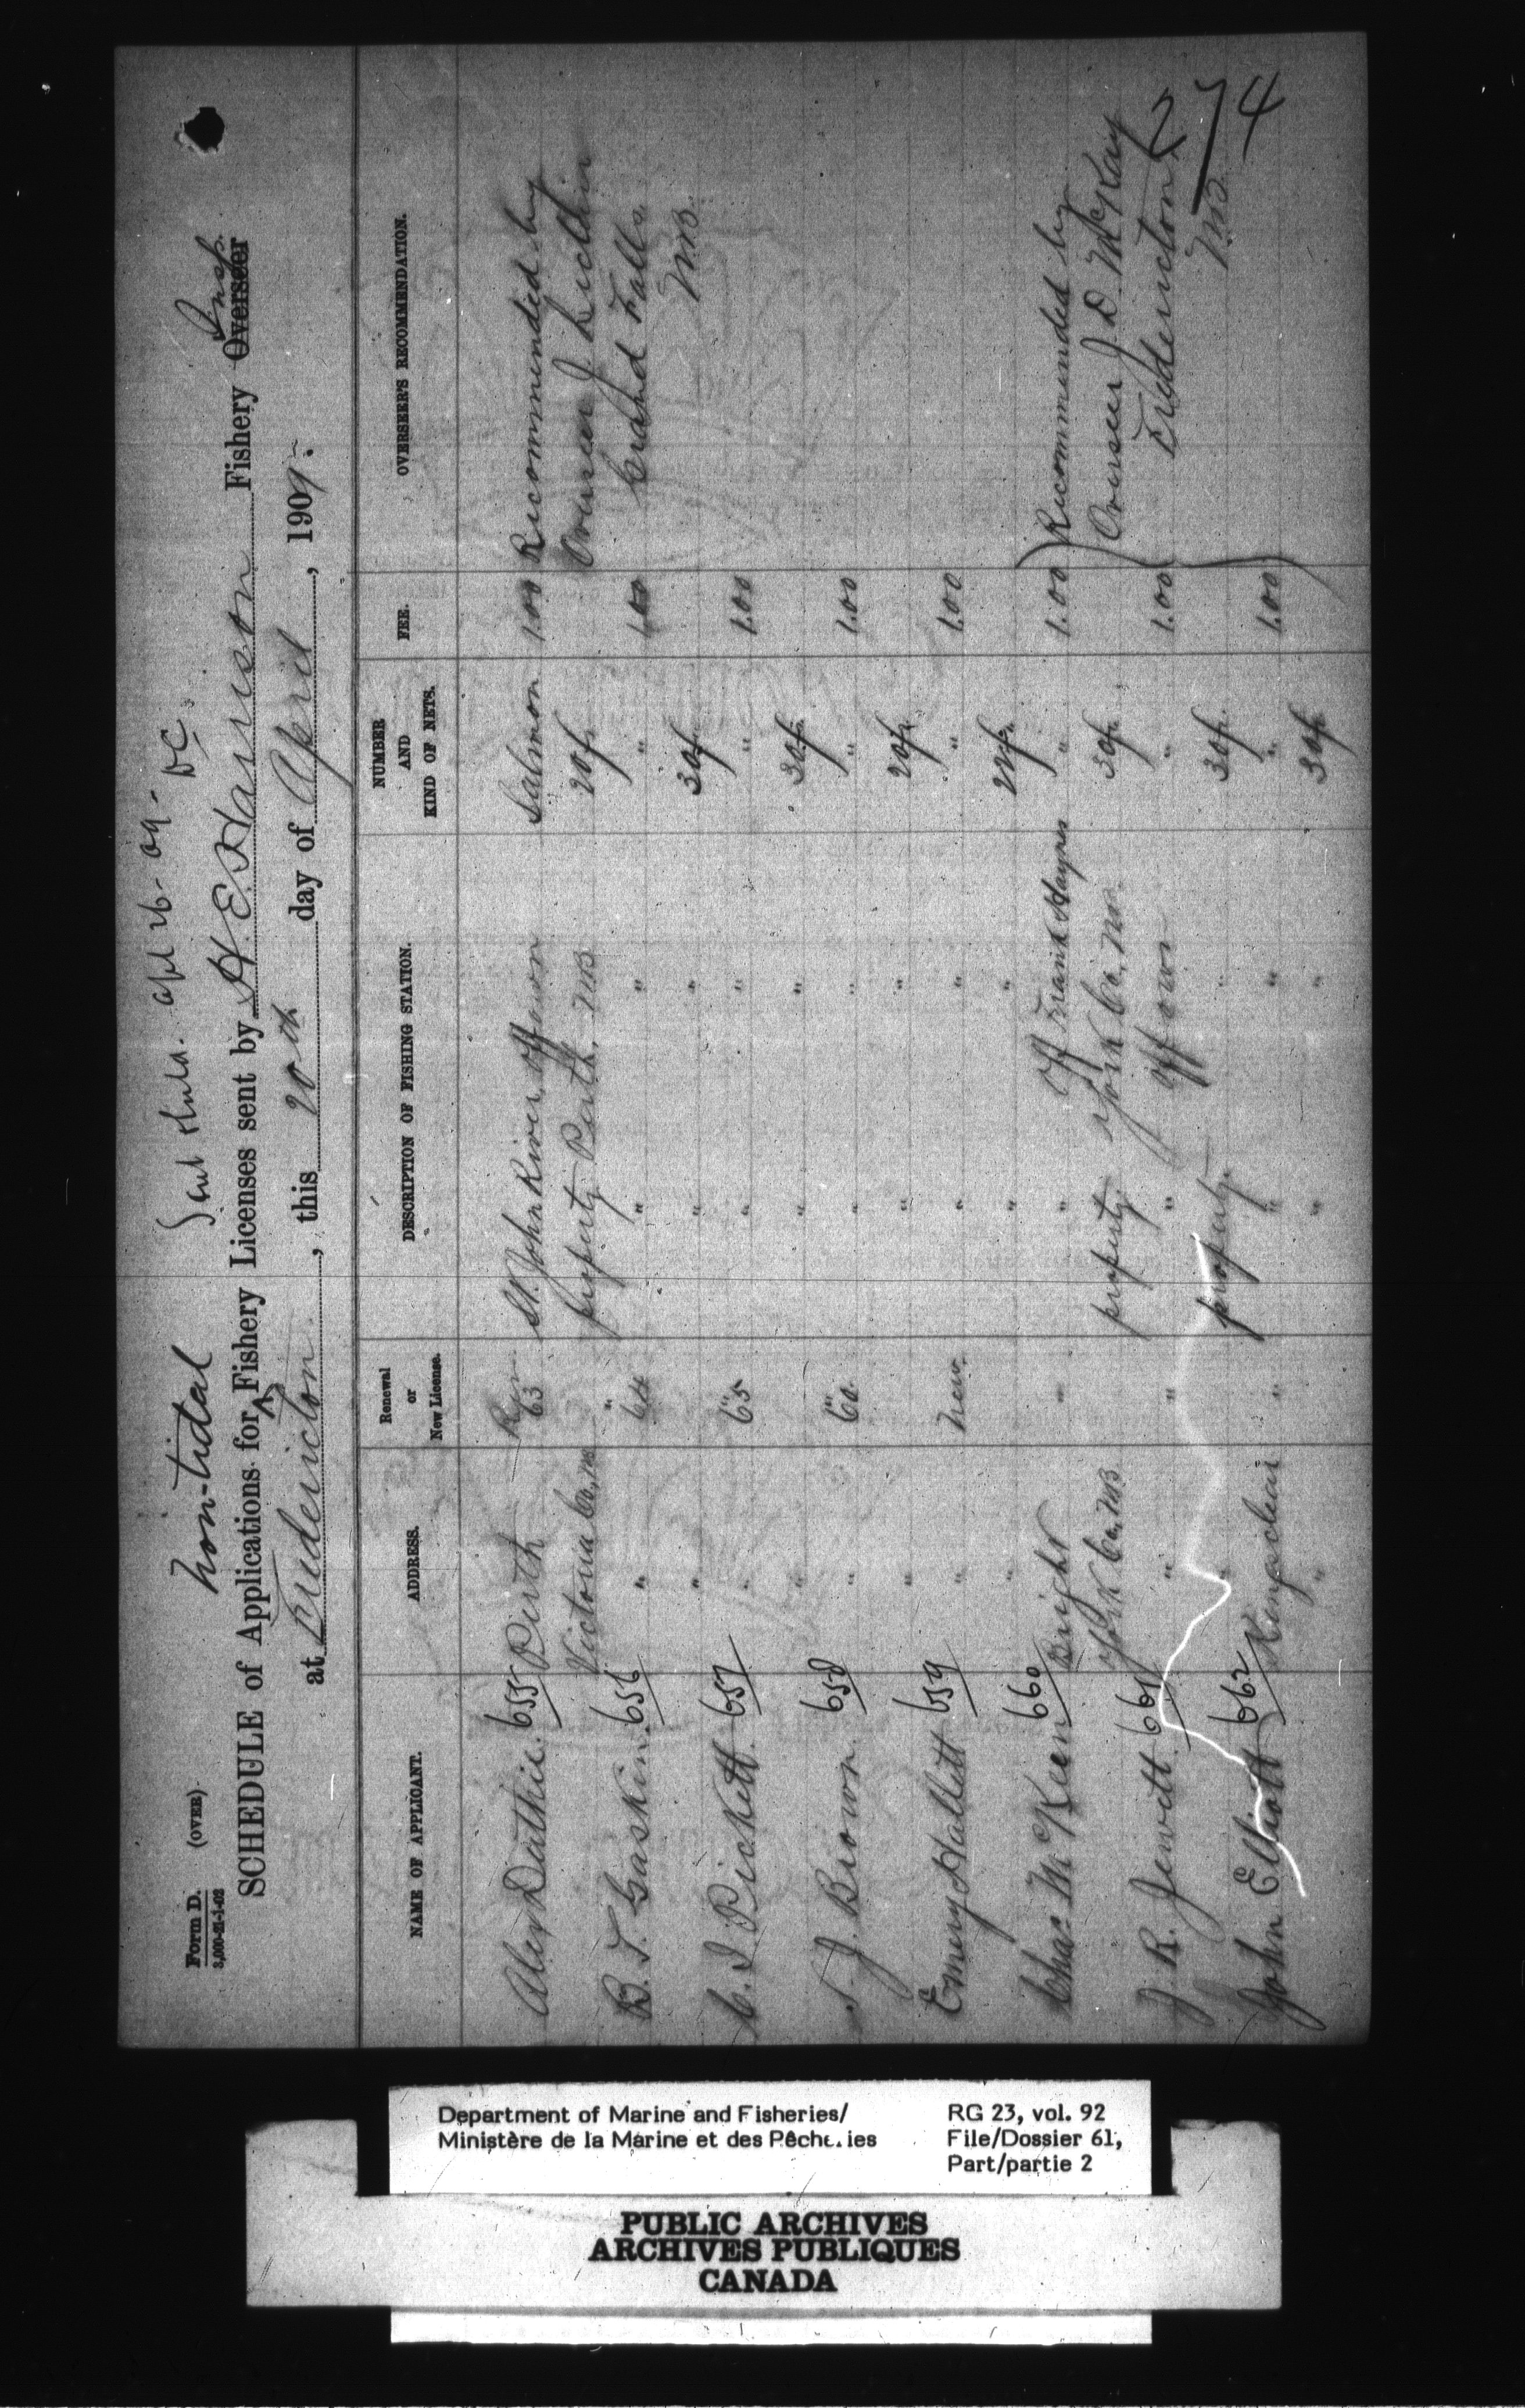 Form D. (OVER)
3,000-21-1-02
non-tidal
Sent Apl 26-09- DC.
SCHEDULE of Applications for Fishery Licenses sent by H. E. Harrison Fishery Overseer Insp.
at Fredericton, this 20th day of April, 1909.
NAME OF APPLICANT. ADDRESS. Renewal or New License. DESCRIPTION OF FISHING STATION. NUMBER AND KIND OF NETS. FEE. OVERSEER'S RECOMMENDATION.
Alex 655 Perth Ren St. John River, off own Salmon 1.00 Recommended by
Victoria Co, NB 63 property Perth, NB 20 f. Overseer J.
B. T. Gaskin 656 " " " " " 1.00 Grand Falls
" 64 " " 30 f. N.B.
C. I. Pickett 657 " " " " " 1.00
" 65 " " 30 f.
J. Brown 658 " " " " " 1.00
" 60 " " 20 f.
Emery Hallett 659 " New " " " 1.00
" " " 20 f.
Chas McKeen 660 Bright " " off Frank Haynes " 1.00 Recommended by
York Co, NB property York Co, NB 30 f. Overseer J. D. McKay
J. R. Jewett 661 " " " off own " 1.00 Fredericton
property " 30 f. N.B.
John Elliott 662 Kingsclear " " " " 1.00
" " " 30 f.
274
Department of Marine and Fisheries/
Ministère de la Marine et des Pêcheries
RG 23, vol. 92
File/Dossier 61,
Part/partie 2
PUBLIC ARCHIVES
ARCHIVES PUBLIQUES
CANADA